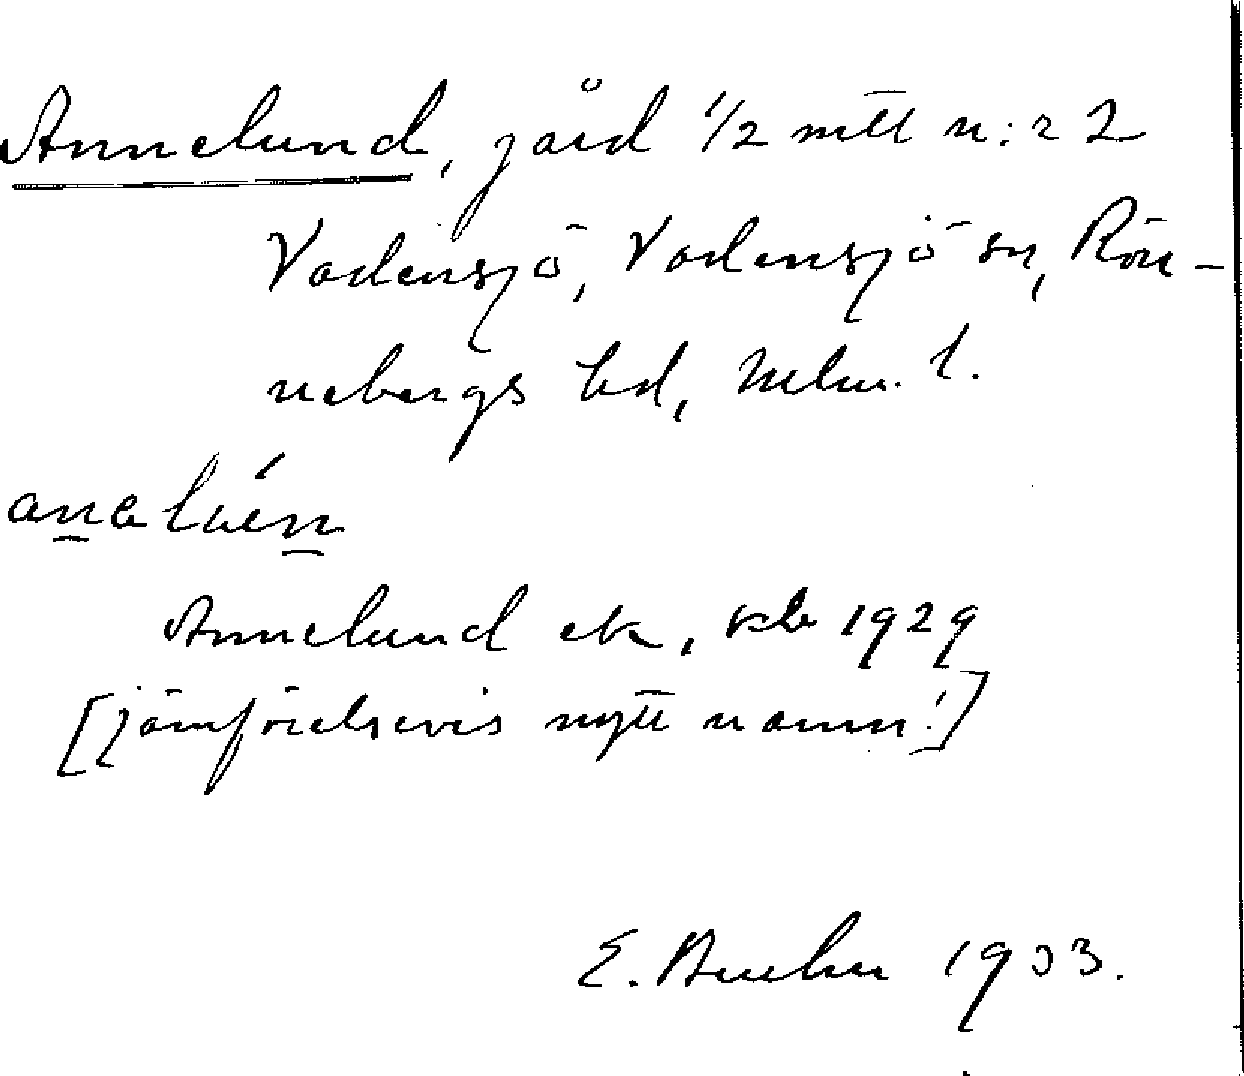 Annelund, gård 1/2 mtl n:r 2
Vadensjö, Vadensjö sn, Rön-
nebergs hd, Mlm. l.
Annelund ek, skb 1929
[jämförelsevis nytt namn!]
E. 1933.